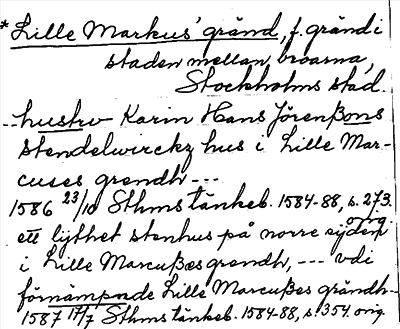 * Lille Markus' gränd, f. gränd i
staden mellan broarna,
Stockholms stad.
-- hustrv Karin Hans Jörenßons
stendelwirckz hus i Lille Mar-
cuses grendh ---
1586 23/10 Sthms tänkeb. 1584-88, s. 273.
orig.
ett lijthet stenhus på norre sijden
i Lille Marcußes grendh, --- vdi
förnämpnde Lille Marcußes grändh -
1587 17/7 Sthms tänkeb. 1584-88, s. 354 orig.